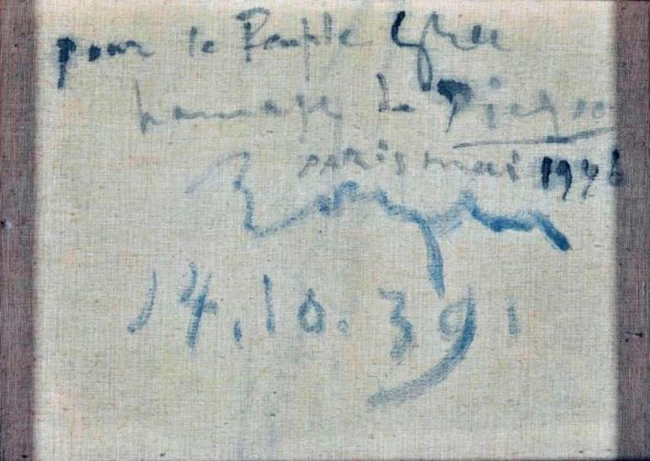 pour le Peuple Grec
hommage de Picasso
PARIS mai 1946
Royan
14.10.39.